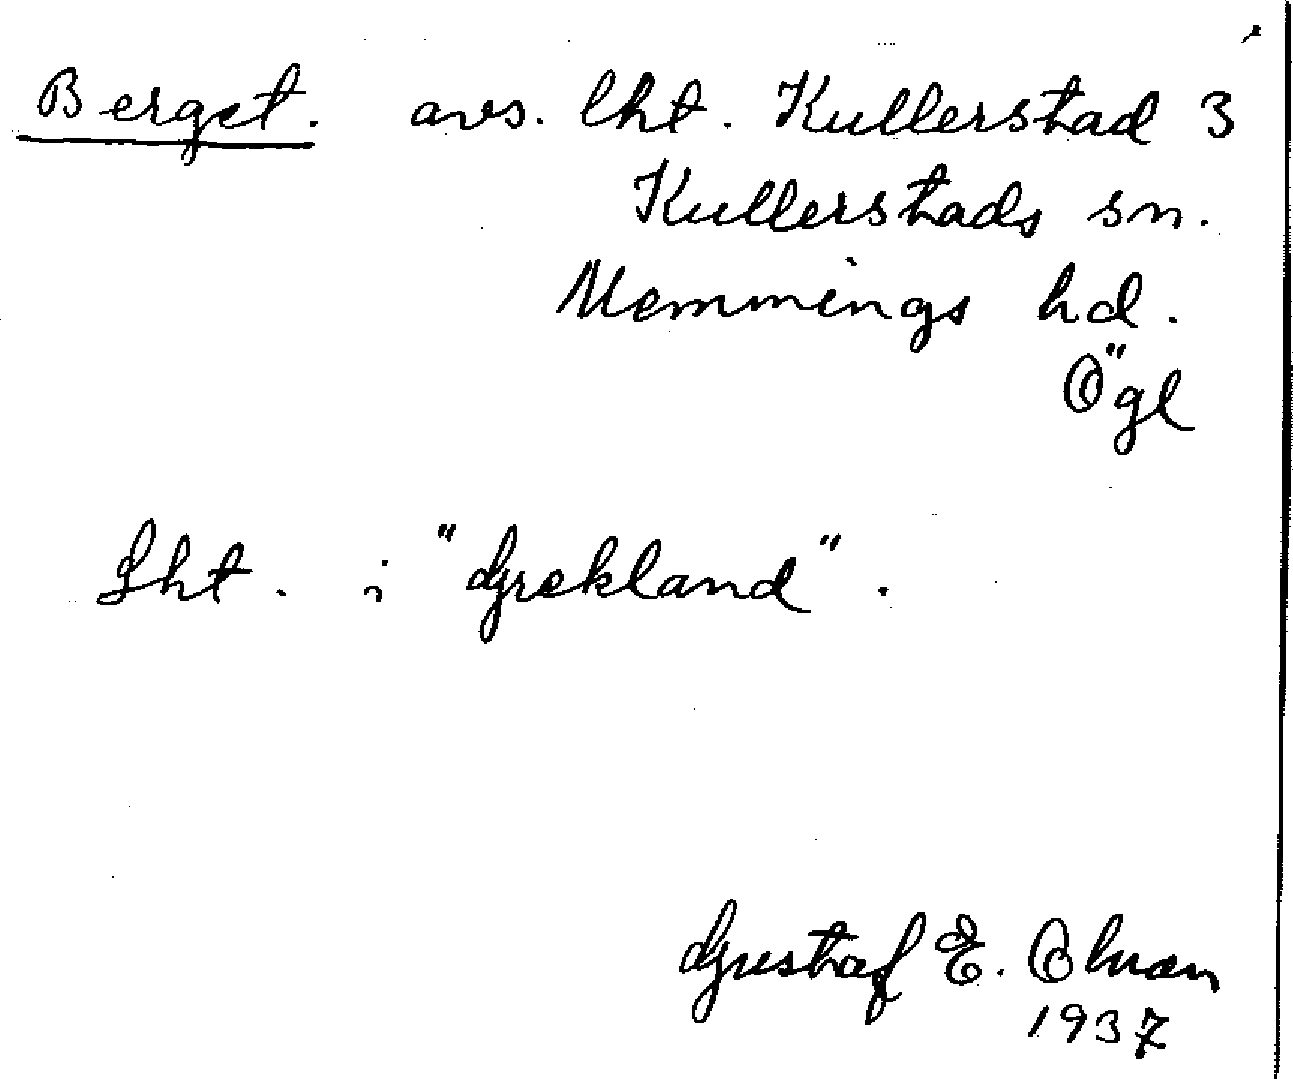 Berget. avs. lht. Kullerstad 3
Kullerstads sn.
Memmings hd.
Ögl
Lht. i "Grekland".
Gustaf E. Olman
1937